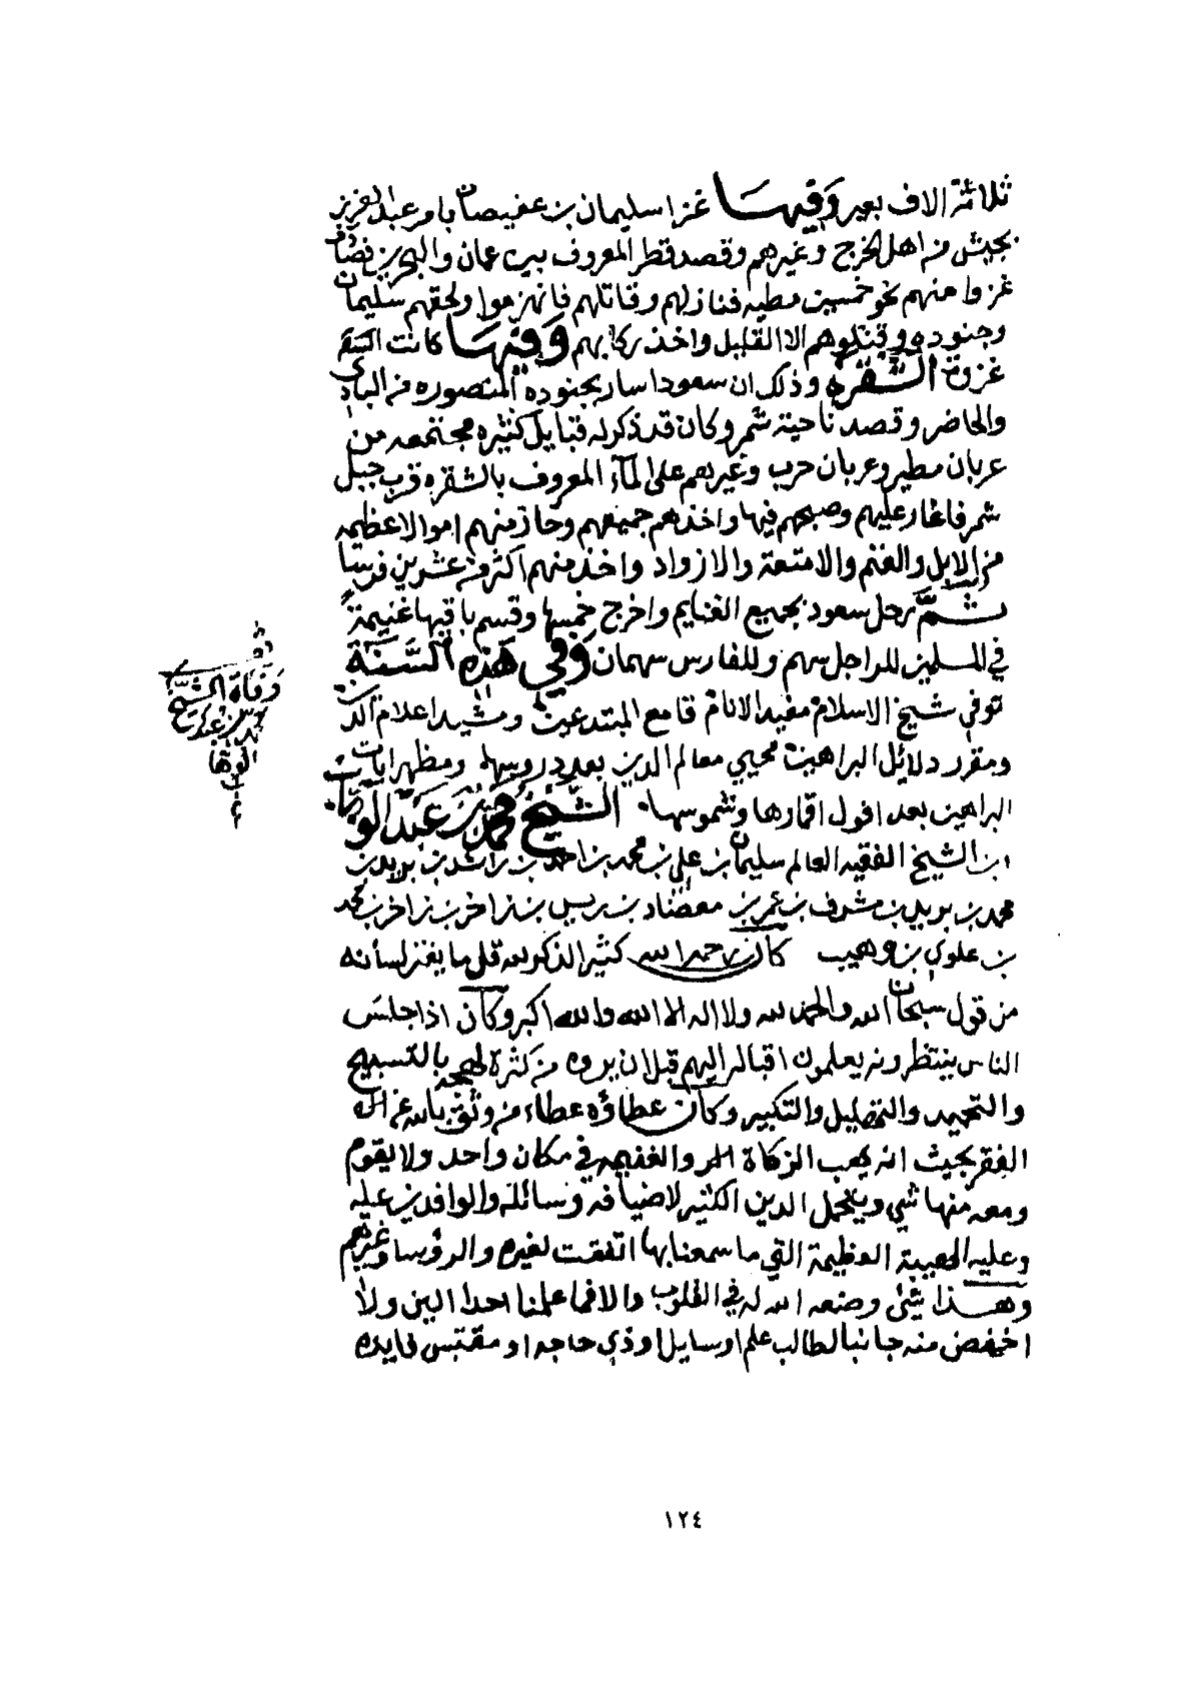 ثلاثة الاف بعير وفيها غزا سليمان بن عفيصان بامر عبدالعزيز
بجيش من اهل الخرج وغيرهم وقصد قطر المعروف بين عمان والبحرين فصادف
غزوا منهم نحو خمسين مطيه فنازلهم وقاتلهم فانهزموا ولحقهم سليمان
وجنوده وقتلوهم الا القليل واخذ ركابهم وفيها كانت
غزوة الشقره وذلك ان سعودا سار بجنوده المنصوره من البادي
والحاضر وقصد ناحية شمر وكان قد ذكر له قبايل كثيره مجتمعه من
عربان مطير وعربان حرب وغيرهم على المآء المعروف بالشقره قرب جبل
شمر فاغار عليهم وصبحهم فيها واخذهم جميعهم وحاز منهم اموالا عظيمه
من الابل والغنم والامتعة والازواد واخذ منهم اكثر من عشرين فرسا
ثم رحل سعود بجميع الغنايم واخرج خمسها وقسم باقيها غنيمة
في المسلمين للراجل سهم وللفارس سهمان وفي هذه السنة
توفي شيخ الاسلام مفيد الانام قامع المبتدعين ومشيد اعلام الدين
ومقرر دلائل البراهين محيي معالم الدين بعد دروسها ومظهر ايات
البراهين بعد افول اقمارها وشموسها الشيخ محمد بن عبد الوهاب
ابن الشيخ الفقيه العالم سليمان بن علي بن محمد بن احمد بن راشد بن بريد بن
محمد بن بريد بن مشرف بن عمر بن معضاد بن ريس بن زاخر بن زاخر بن محمد
بن علوي بن وهيب كان رحمه الله كثير الذكر لله قل ما يفتر لسانه
من قول سبحان الله والحمد لله ولا اله الا الله والله اكبر وكان اذا جلس
الناس ينتظرونه يعلمون اقباله اليهم قبل ان يروه من كثرة لهجه بالتسبيح
والتحميد والتهليل والتكبير وكان عطاؤه عطاء من وثق بالله عن
الفقر بحيث انه يهب الزكاة والغنيمه في مكان واحد ولا يقوم
ومعه منها شي ويتحمل الدين الكثير لاضيافه وسائله والوافدين عليه
وعليه الهيبة العظيمة التي ما سمعنا بها اتفقت لغيره والرؤسا وغيرهم
وهذا شئ وضعه الله له في القلوب والا فما علمنا احدا الين ولا
اخفض منه جانبا لطالب علم او سايل او ذي حاجه او مقتبس فايده
وفاة الشيخ
محمد بن عبد
الوهاب
١٢٤